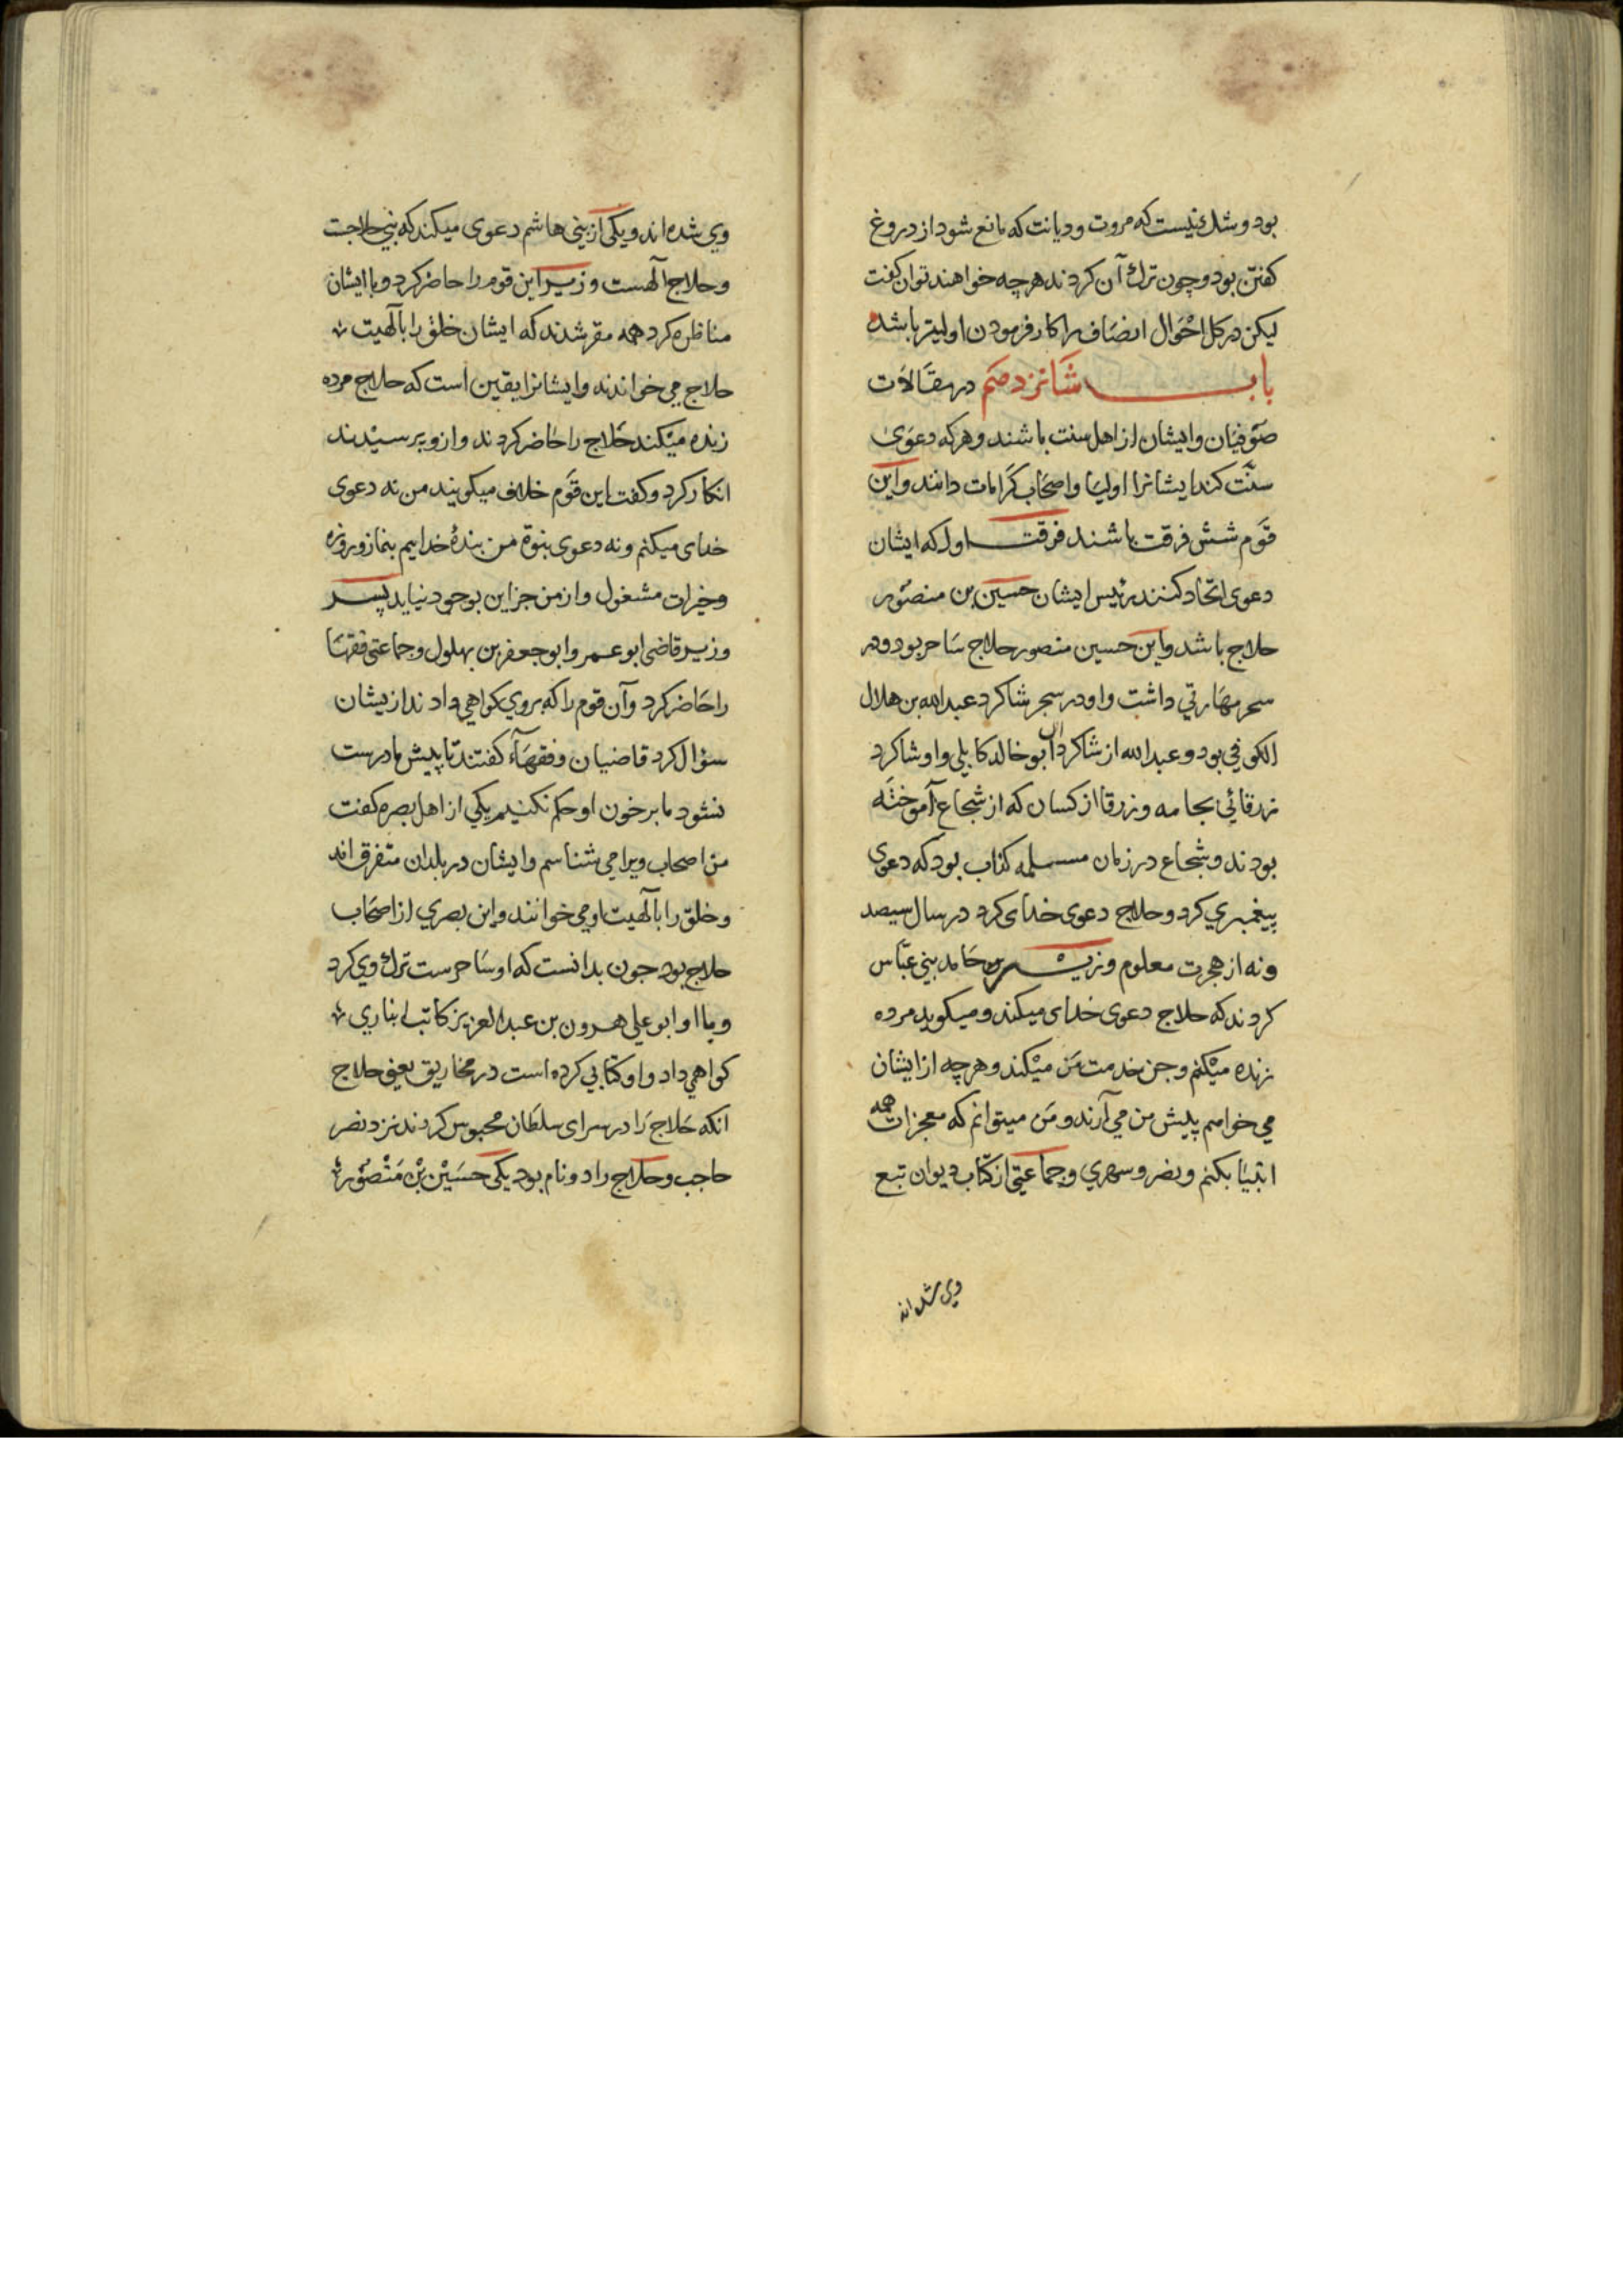 بود و شك نیست که مروت و دیانت که مانع شود از دروغ
کفتن بود و چون ترك آن کردند هرچه خواهند توان کفت
لیکن در کل احْوال انصَاف را کار فرمودن اولیتر باشد
بابــــ شَانزدهمَ در مقَالاَت
صوْفیَان و ایشان از اهل سنت باشند و هرکه دعوَی
سنّت کند ایشانرا اولیَا و اصحَاب کَرامَات دانند و این
قوَم شش فرقت باشند فرقتــ اول که ایشان
دعوی اتّحاد کنند رئیس ایشان حسین بن منصوُر
حلاج باشد و این حسین منصور حلاج سَاحر بود و در
سحر مهَارتي داشت و او در سحر شاکرد عبدالله بن هلال
الکوفي بود و عبدالله از شاکردان ابوخالد کابلي و او شاکرد
زرقائي بجامه و زرقا از کسان که از شجاع آموختَه
بودند و شجاع در زمان مسیلمه کذاب بود که دعوی
پیغمبري کرد و حلاج دعوی خدای کرد در سال سیصد
و نه از هجرت معلوم وزیر حَامد بني عبّاس
کردند که حلاج دعوی خدای میکند و میکوید مرده
زنده میْکنم و جن خدمت مَن میْکند و هرچه از ایشان
مي خواهم پیش من مي آرند و مَن میتوانم که معجزات همه
انبیَا بکنم و نصر و سمري و جماعتي از کتّاب دیوان تبع
وی شده اند
وي شده اند و یکي از بني هاشم دعوی میکند که نبي حلاجت
و حلاج آلهست وزیر این قوم را حاضر کرد و با ایشان
مناظره کرد همه مقر شدند که ایشان خلق را بآلهیت
حلاج مي خوانند و ایشانرا یقین است که حلاج مرده
زنده میْکند حَلاج را حَاضر کردند و از و پرسیْدند
انکار کرد و کفت این قوَم خلاف میکویند من نه دعوی
خدای میکنم و نه دعوی نبوة من بندهٔ خدایم بنماز و روزه
و خیرات مشغول و از من جز این بوجود نیاید پسر
وزیر قاضی ابوعمر و ابوجعفر بن بهلول و جماعتي فقهَا
را حَاضر کرد و آن قوم را که بروي کواهي دادند از یشان
سؤال کرد قاضیان و فقهَآء کفتند تا پیش ما درست
نشود ما بر خون او حکم نکنیم یکي از اهل بصره کفت
من اصحاب ویرا مي شناسم و ایشان در بلدان متفرق اند
و خلق را بآلهیت او مي خوانند و این بصري از اصحَاب
حلاج بود جون بدانست که او سَاحرست ترك وي کرد
و با او ابوعلي هرون بن عبدالعزیز کاتب انباري
کواهي داد و او کتابي کرده است در مخاریق یعني حلاج
انکه حَلاج رَا در سرای سلطَان محبوس کردند نزد نصر
حاجب و حلاج را دو نام بود یکي حسَیْن بْن مَنْصوُر